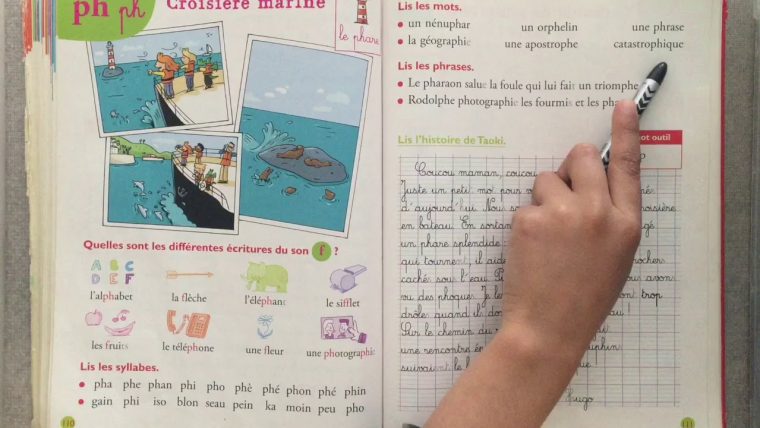 ph ph Croisière marine
le phare
Quelles sont les différentes écritures du son f ?
A B C
D E F
l'alphabet la flèche l'éléphant le sifflet
les fruits le téléphone une fleur une photographie
Lis les syllabes.
• pha phe phan phi pho phè phé phon phé phin
• gain phi iso blon seau pein ka moin peu pho
110
Lis les mots.
• un nénuphar un orphelin une phrase
• la géographie une apostrophe catastrophique
Lis les phrases.
• Le pharaon salue la foule qui lui fait un triomphe
• Rodolphe photographie les fourmis et les
Lis l'histoire de Taoki.
outil
Coucou maman, coucou
Juste un petit mot pour
d'aujourd'hui. Nous croisière
en bateau. En sortant
un phare splendide
qui tournent, il aide rochers
cachés sous l'eau. avons
vu des phoques. Je les trop
drôles quand ils
Sur le chemin du
une rencontre
suivaient le
Hugo
111